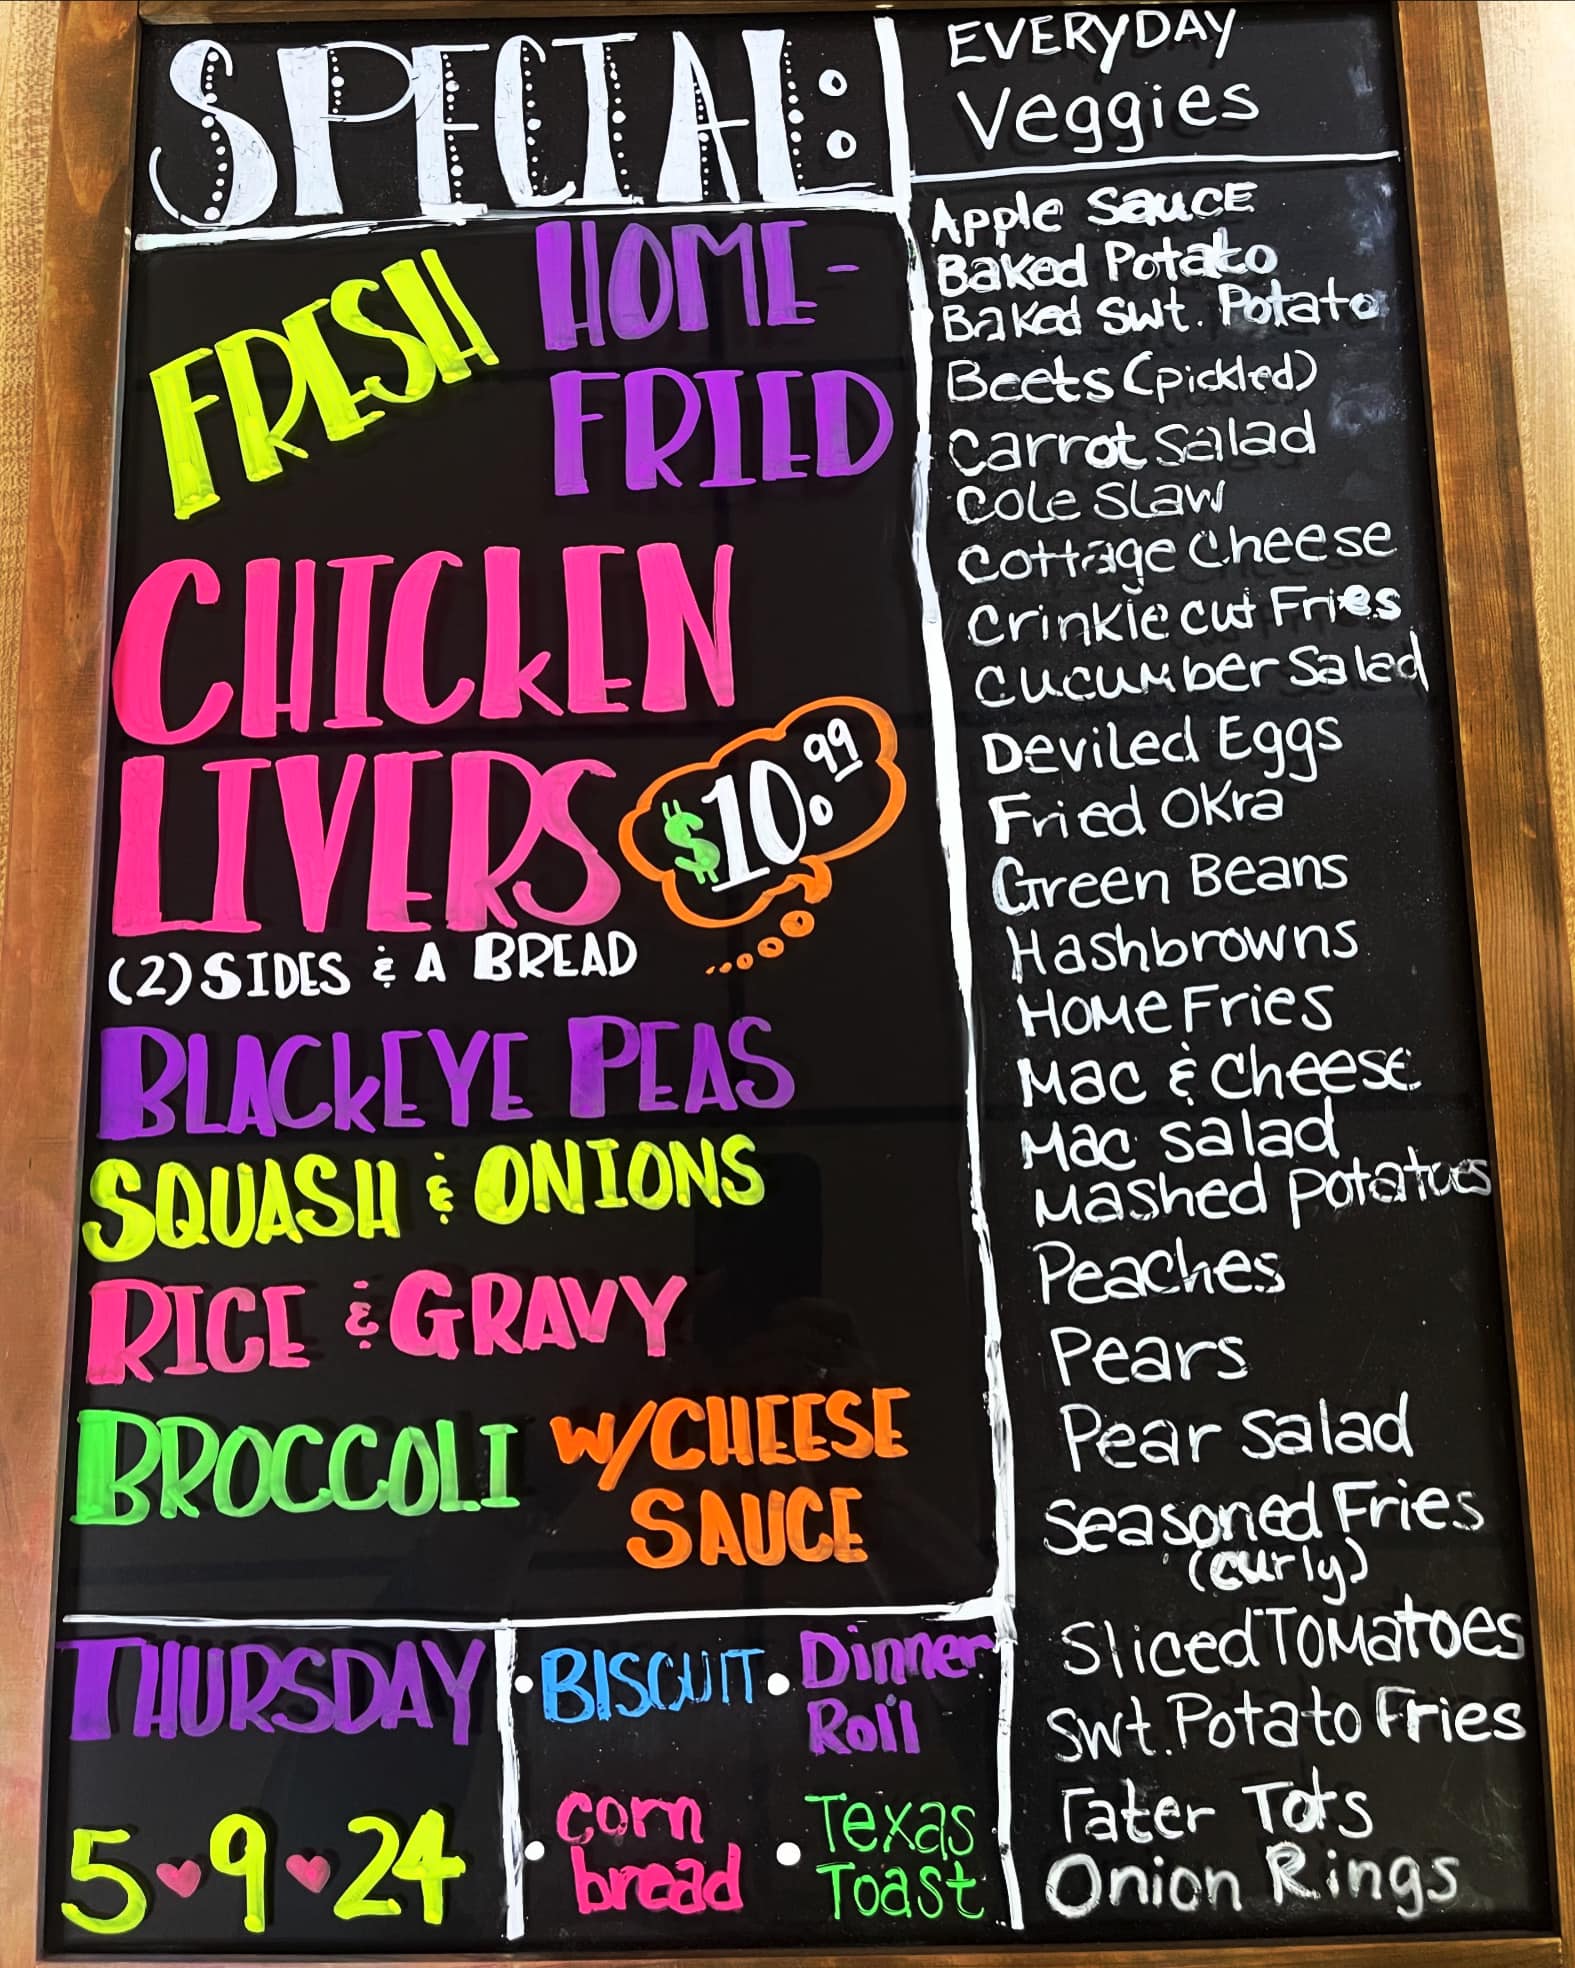 SPECIAL:
FRESH HOME-
FRIED
CHICKEN
LIVERS $10.99
(2) SIDES & A BREAD
BLACKEYE PEAS
SQUASH & ONIONS
RICE & GRAVY
BROCCOLI W/CHEESE
SAUCE
THURSDAY
5♥9♥24
• BISCUIT • Dinner
Roll
• corn
bread
• Texas
Toast
EVERYDAY
Veggies
Apple Sauce
Baked Potato
Baked Swt. Potato
Beets (pickled)
Carrot Salad
Cole Slaw
Cottage Cheese
Crinkle cut Fries
Cucumber Salad
Deviled Eggs
Fried Okra
Green Beans
Hashbrowns
Home Fries
Mac & Cheese
Mac Salad
Mashed Potatoes
Peaches
Pears
Pear Salad
Seasoned Fries
(curly)
Sliced Tomatoes
Swt. Potato Fries
Tater Tots
Onion Rings